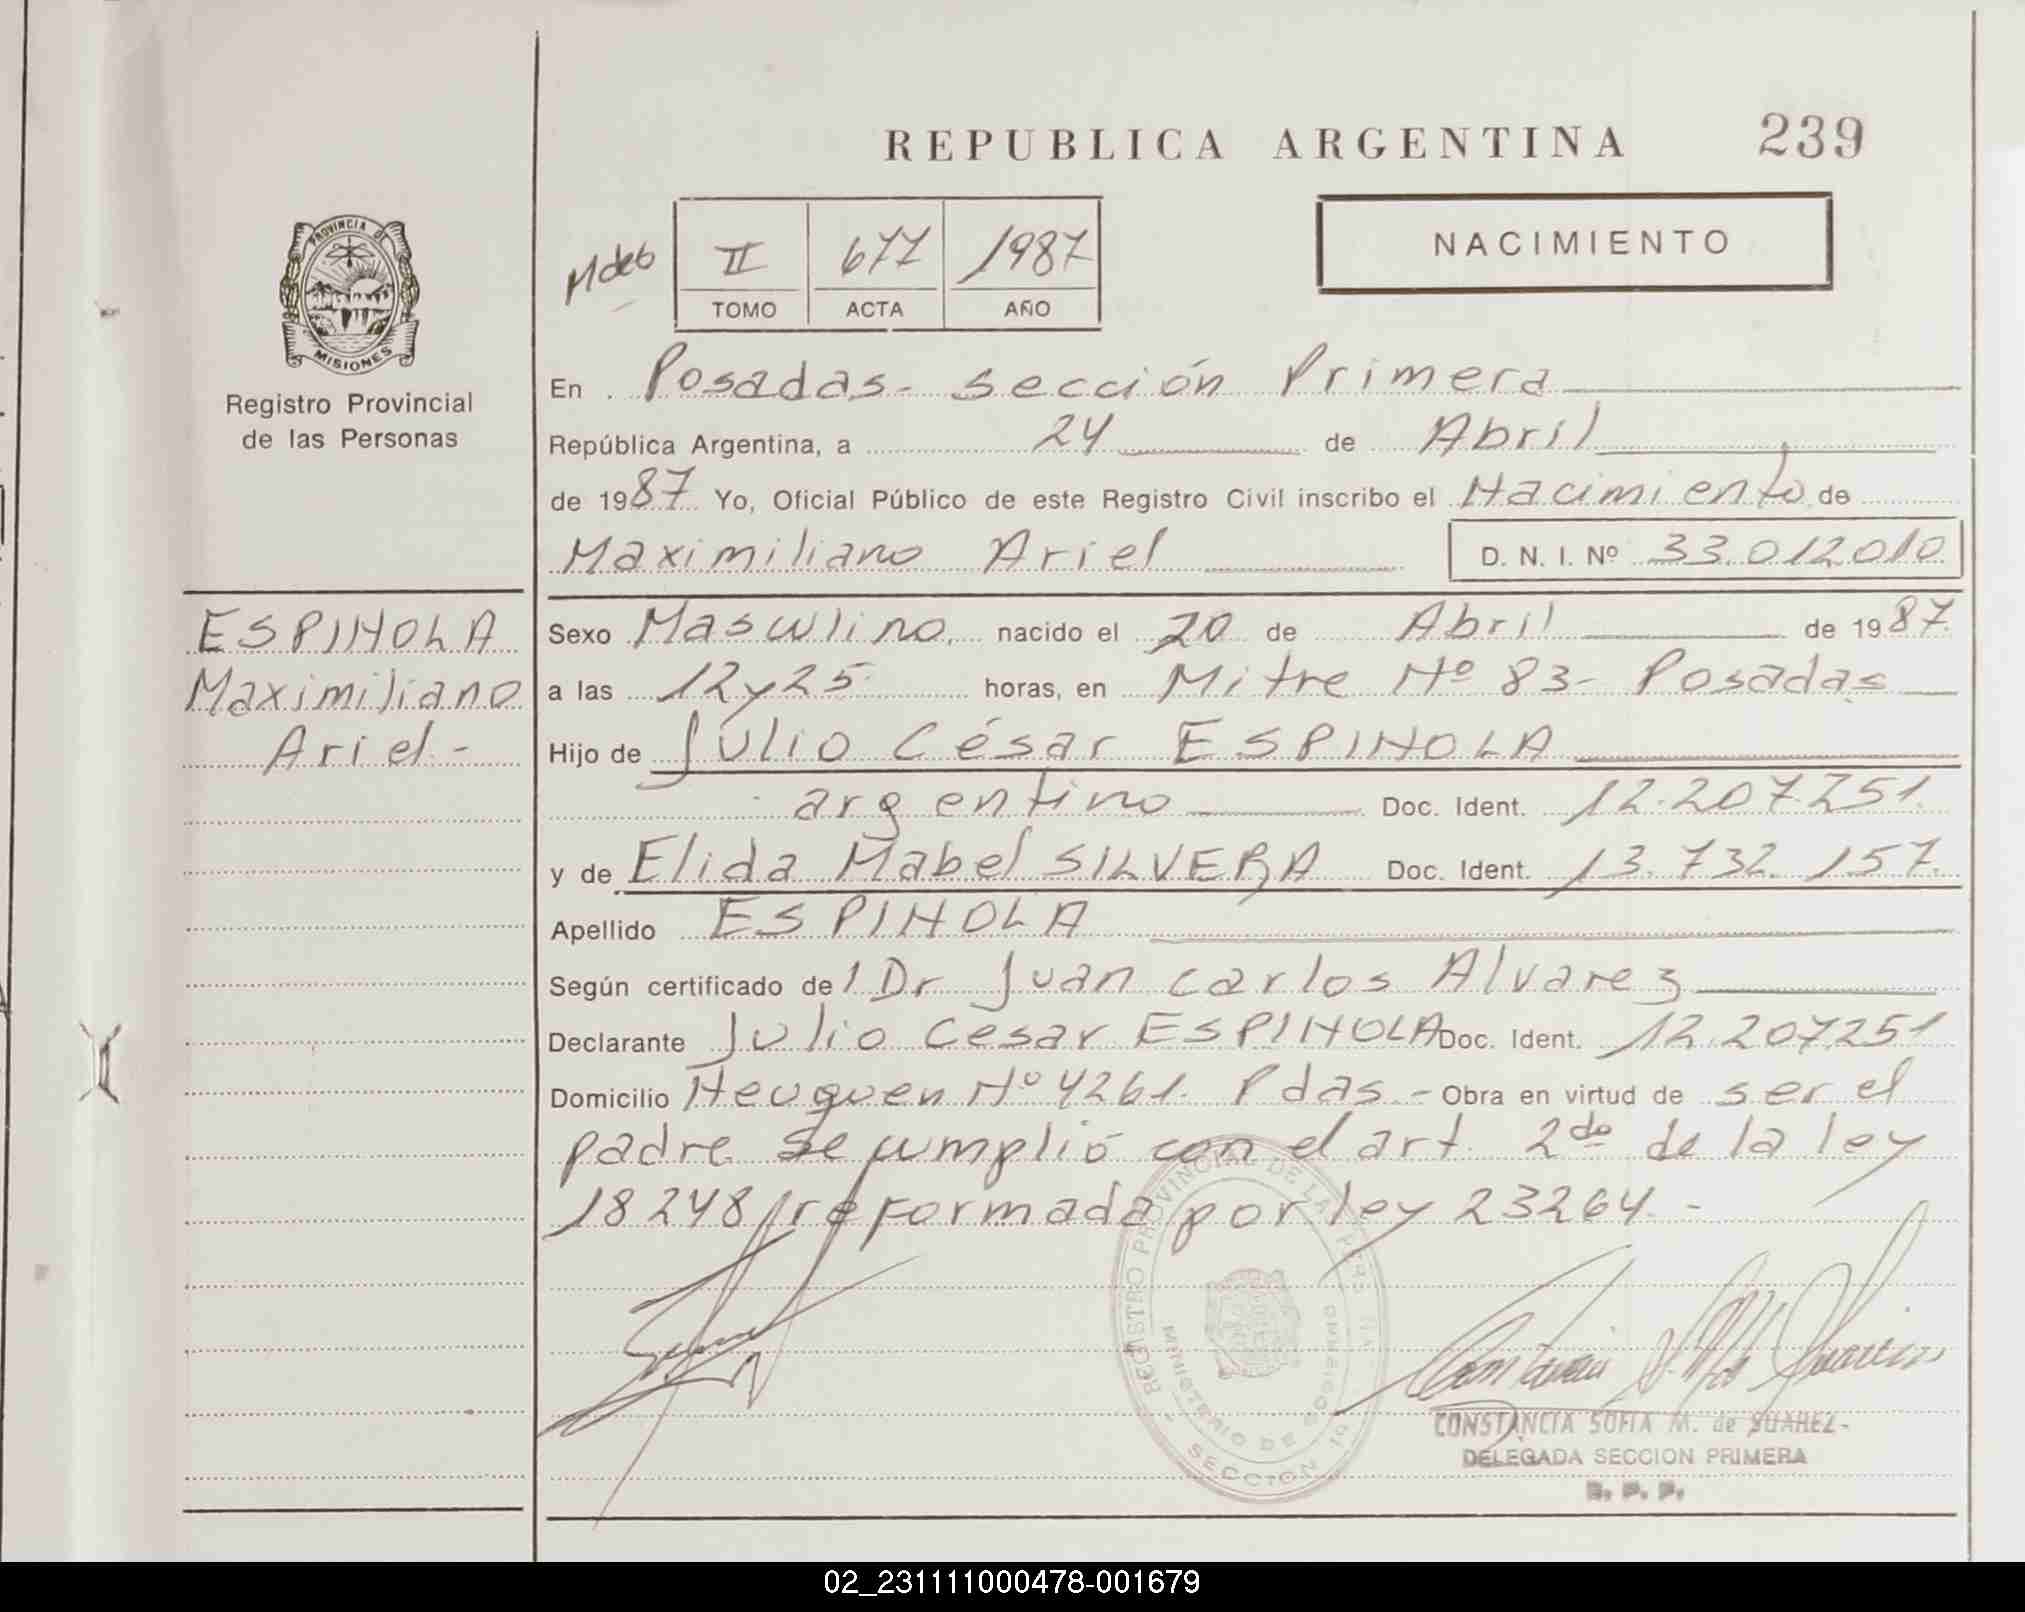 REPUBLICA ARGENTINA 239
NACIMIENTO
II 677 1987
TOMO ACTA AÑO
PROVINCIA DE
MISIONES
Registro Provincial
de las Personas
En Posadas - sección Primera
República Argentina, a 24 de Abril
de 1987 Yo, Oficial Público de este Registro Civil inscribo el Nacimiento de
Maximiliano Ariel D. N. I. Nº 33.012.010
ESPINOLA
Maximiliano
Ariel.-
Sexo Masculino nacido el 20 de Abril de 1987
a las 12 y 25 horas, en Mitre Nº 83 - Posadas
Hijo de Julio César ESPINOLA
argentino Doc. Ident. 12.207.251
y de Elida Mabel SILVERA Doc. Ident. 13.732.157.
Apellido ESPINOLA
Según certificado del Dr Juan Carlos Alvarez
Declarante Julio César ESPINOLA Doc. Ident. 12.207.251
Domicilio Neuquen Nº 4261. Pdas.- Obra en virtud de ser el
padre se cumplió con el art. 2do de la ley
18248 reformada por ley 23264.-
REGISTRO PROVINCIAL DE LAS PERSONAS
MINISTERIO DE GOBIERNO
SECCION 1a
CONSTANCIA SOFIA M. de SUAREZ-
DELEGADA SECCION PRIMERA
R. P. P.
02_231111000478-001679